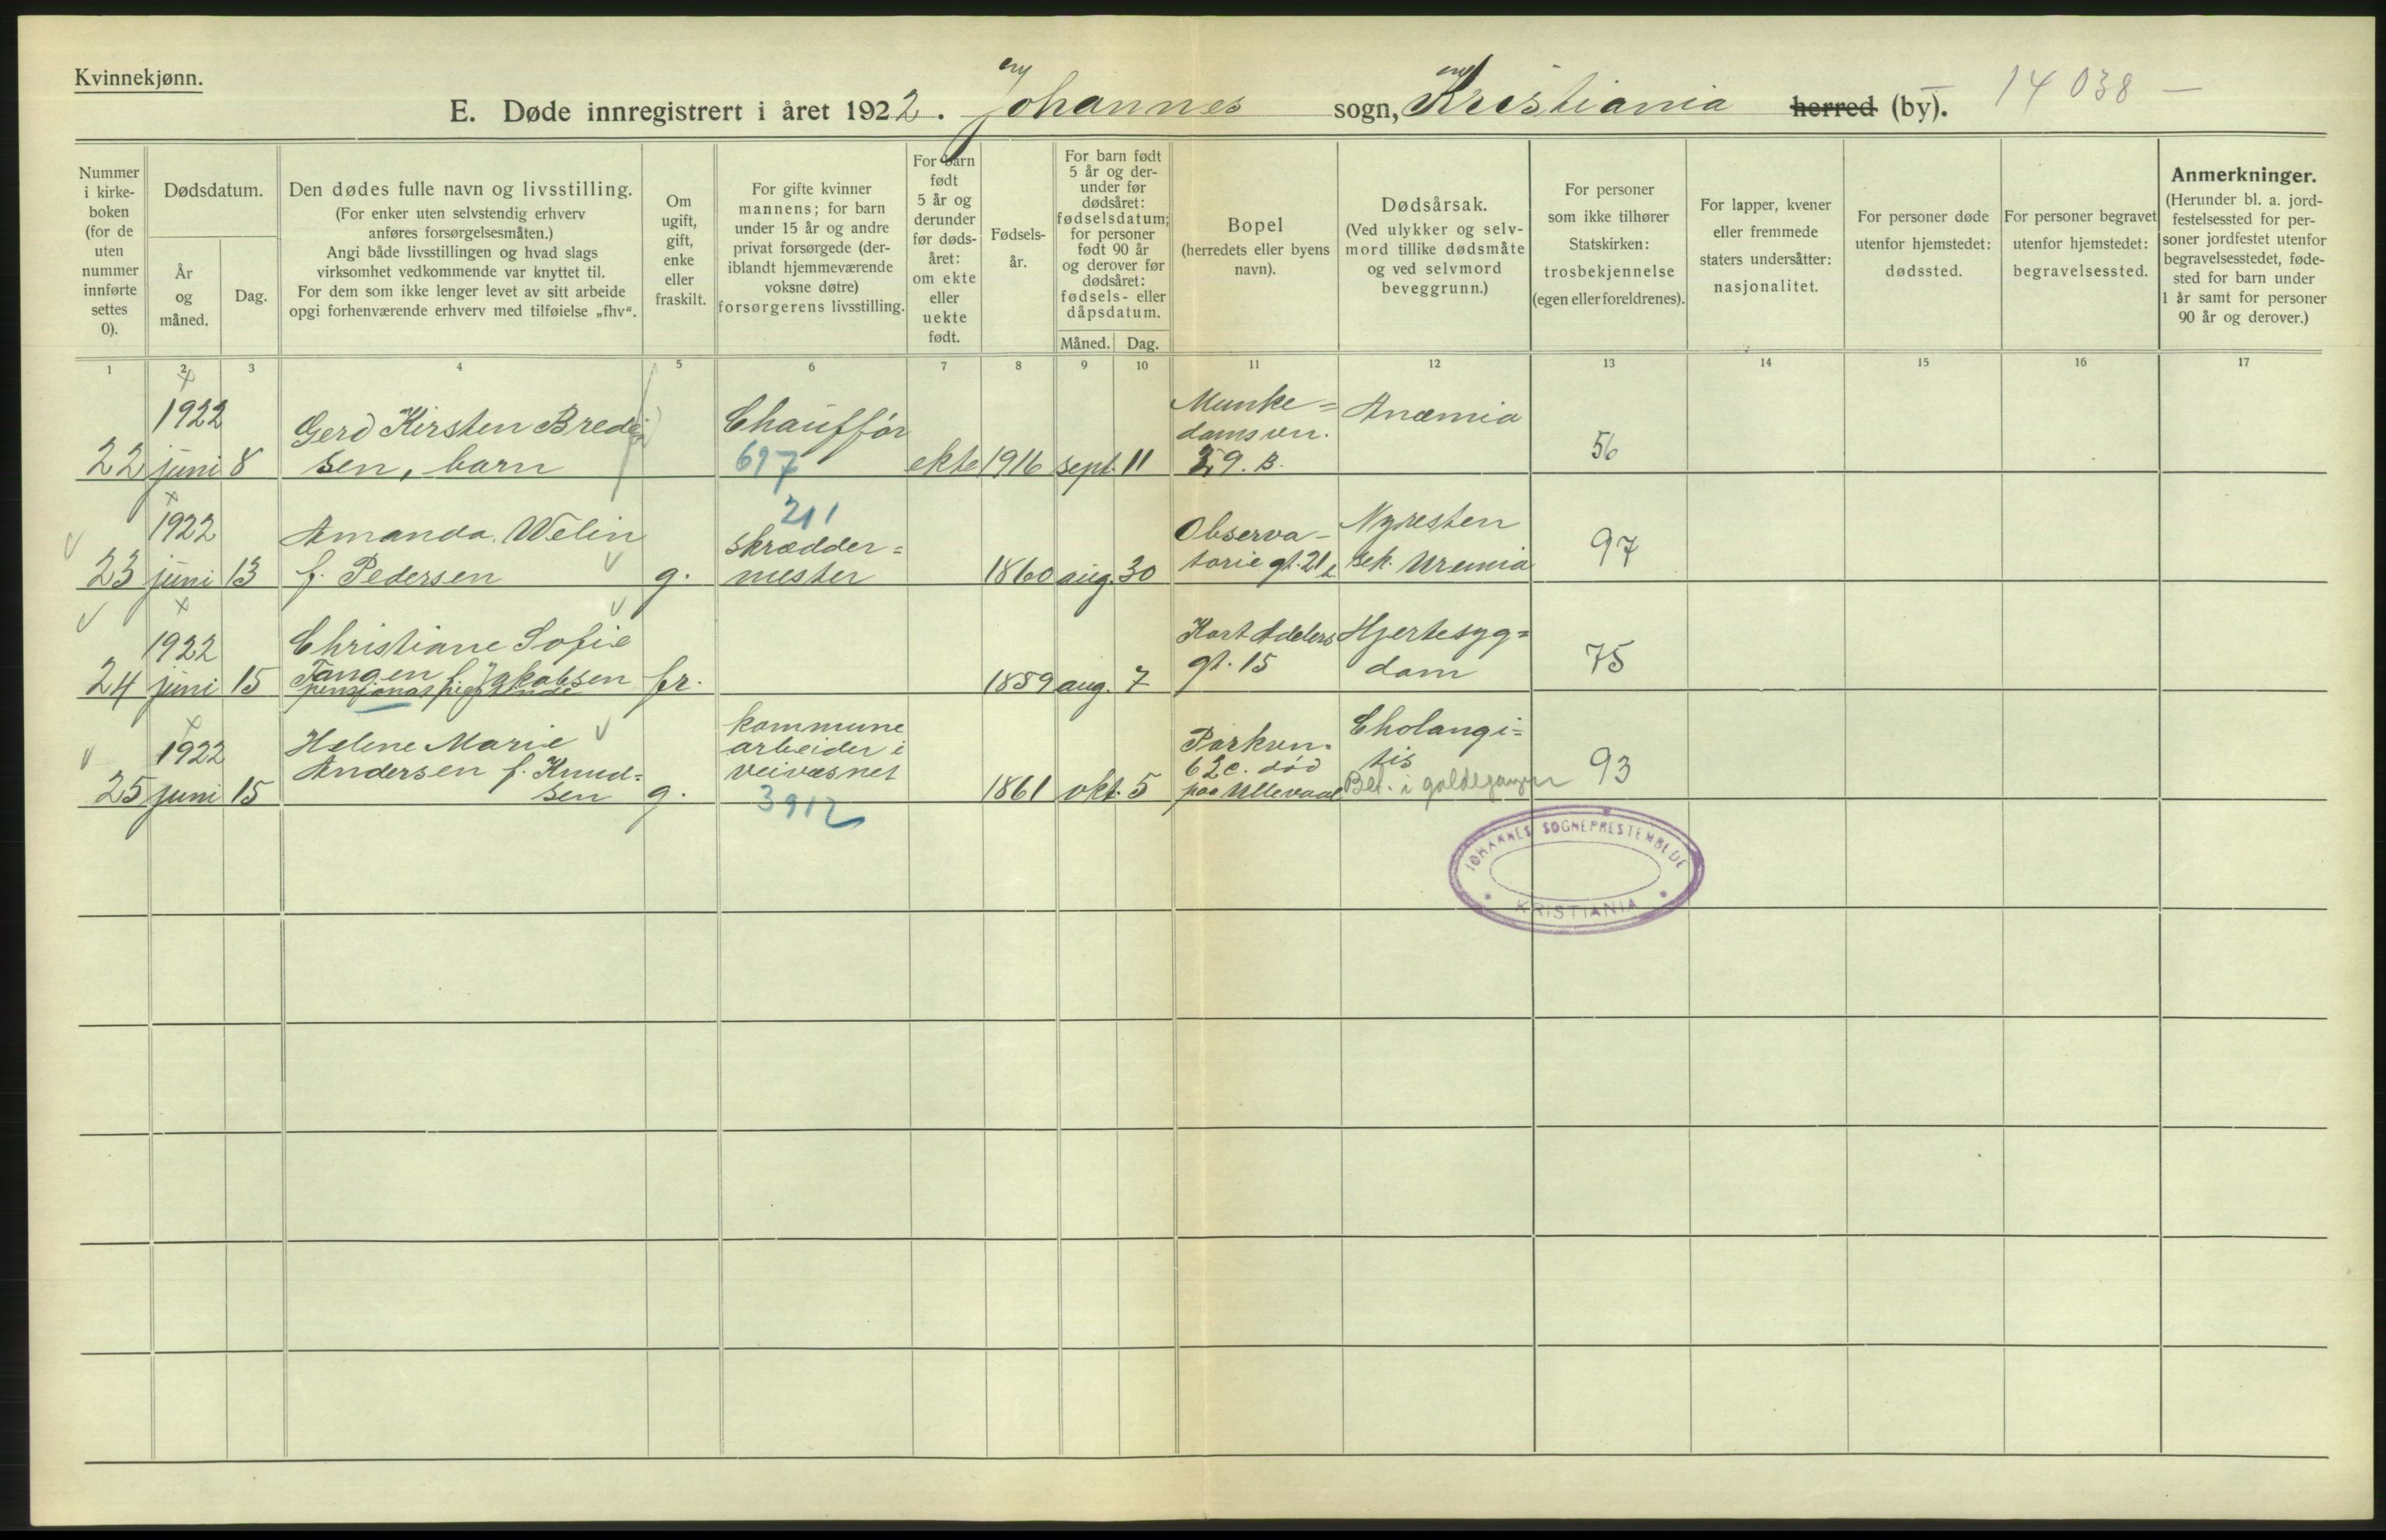 Kvinnekjønn.
E. Døde innregistrert i året 1922. Johannes sogn, Kristiania herred (by). 14 038 —
Nummer
i kirke-
boken
(for de
uten
nummer
innførte
settes
0).
Dødsdatum.
År
og
måned.
Dag.
Den dødes fulle navn og livsstilling.
(For enker uten selvstendig erhverv
anføres forsørgelsesmåten.)
Angi både livsstillingen og hvad slags
virksomhet vedkommende var knyttet til.
For dem som ikke lenger levet av sitt arbeide
opgi forhenværende erhverv med tilføielse „fhv“.
Om
ugift,
gift,
enke
eller
fraskilt.
For gifte kvinner
mannens; for barn
under 15 år og andre
privat forsørgede (der-
iblandt hjemmeværende
voksne døtre)
forsørgerens livsstilling.
For barn
født
5 år og
derunder
før døds-
året:
om ekte
eller
uekte
født.
Fødsels-
år.
For barn født
5 år og der-
under før
dødsåret:
fødselsdatum;
for personer
født 90 år
og derover før
dødsåret:
fødsels- eller
dåpsdatum.
Måned. Dag.
Bopel
(herredets eller byens
navn).
Dødsårsak.
(Ved ulykker og selv-
mord tillike dødsmåte
og ved selvmord
beveggrunn.)
For personer
som ikke tilhører
Statskirken:
trosbekjennelse
(egen eller foreldrenes).
For lapper, kvener
eller fremmede
staters undersåtter:
nasjonalitet.
For personer døde
utenfor hjemstedet:
dødssted.
For personer begravet
utenfor hjemstedet:
begravelsessted.
Anmerkninger.
(Herunder bl. a. jord-
festelsessted for per-
soner jordfestet utenfor
begravelsesstedet, føde-
sted for barn under
1 år samt for personer
90 år og derover.)
1 2 3 4 5 6 7 8 9 10 11 12 13 14 15 16 17
22
1922
juni
8
Gerd Kirsten Brede-
sen, barn
Chauffør
697
ekte
1916
sept.
11
Munke=
damsvn.
29. B.
Anæmia
56
23
1922
juni
13
Amanda Welin
f. Pedersen
g.
211
skrædder=
mester
1860
aug.
30
Observa-
torie gt. 21
Nyresten
sek. Uremia
97
24
1922
juni
15
Christiane Sofie
Tangen f. Jakobsen
fr.
1859
aug.
7
Kort Adelers
gt. 15
Hjertesyg=
dom
75
25
1922
juni
15
Helene Marie
Andersen f. Knud=
sen
g.
kommune
arbeider i
veivæsnet
3912
1861
okt.
5
Parkvn.
62c. død
paa Ullevaal
Cholangi=
tis
Bet. i galdegangen
93
JOHANNES SOGNEPRESTEMBEDE
KRISTIANIA